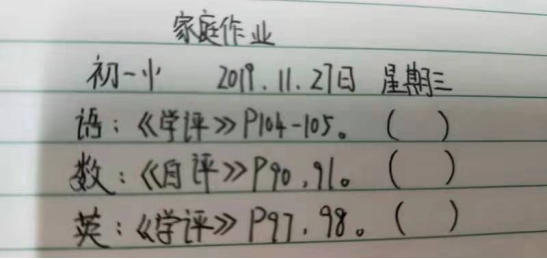 家庭作业
初一小 2019.11.27日 星期三
语：《学评》P104-105。（ ）
数：《自评》P90,91。（ ）
英：《学评》P97,98。（ ）